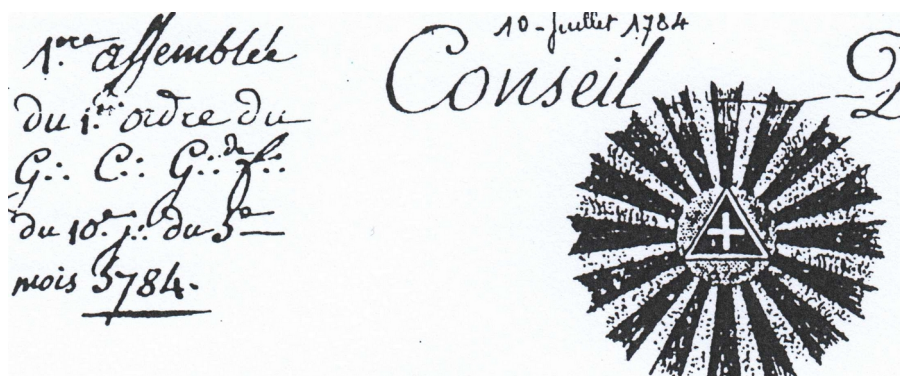 1.ere assemblée
du 1.er ordre du
G∴ C∴ G∴ de f∴
du 10.e j∴ du 5.e
mois 5784.
10 - Juillet 1784
Conseil